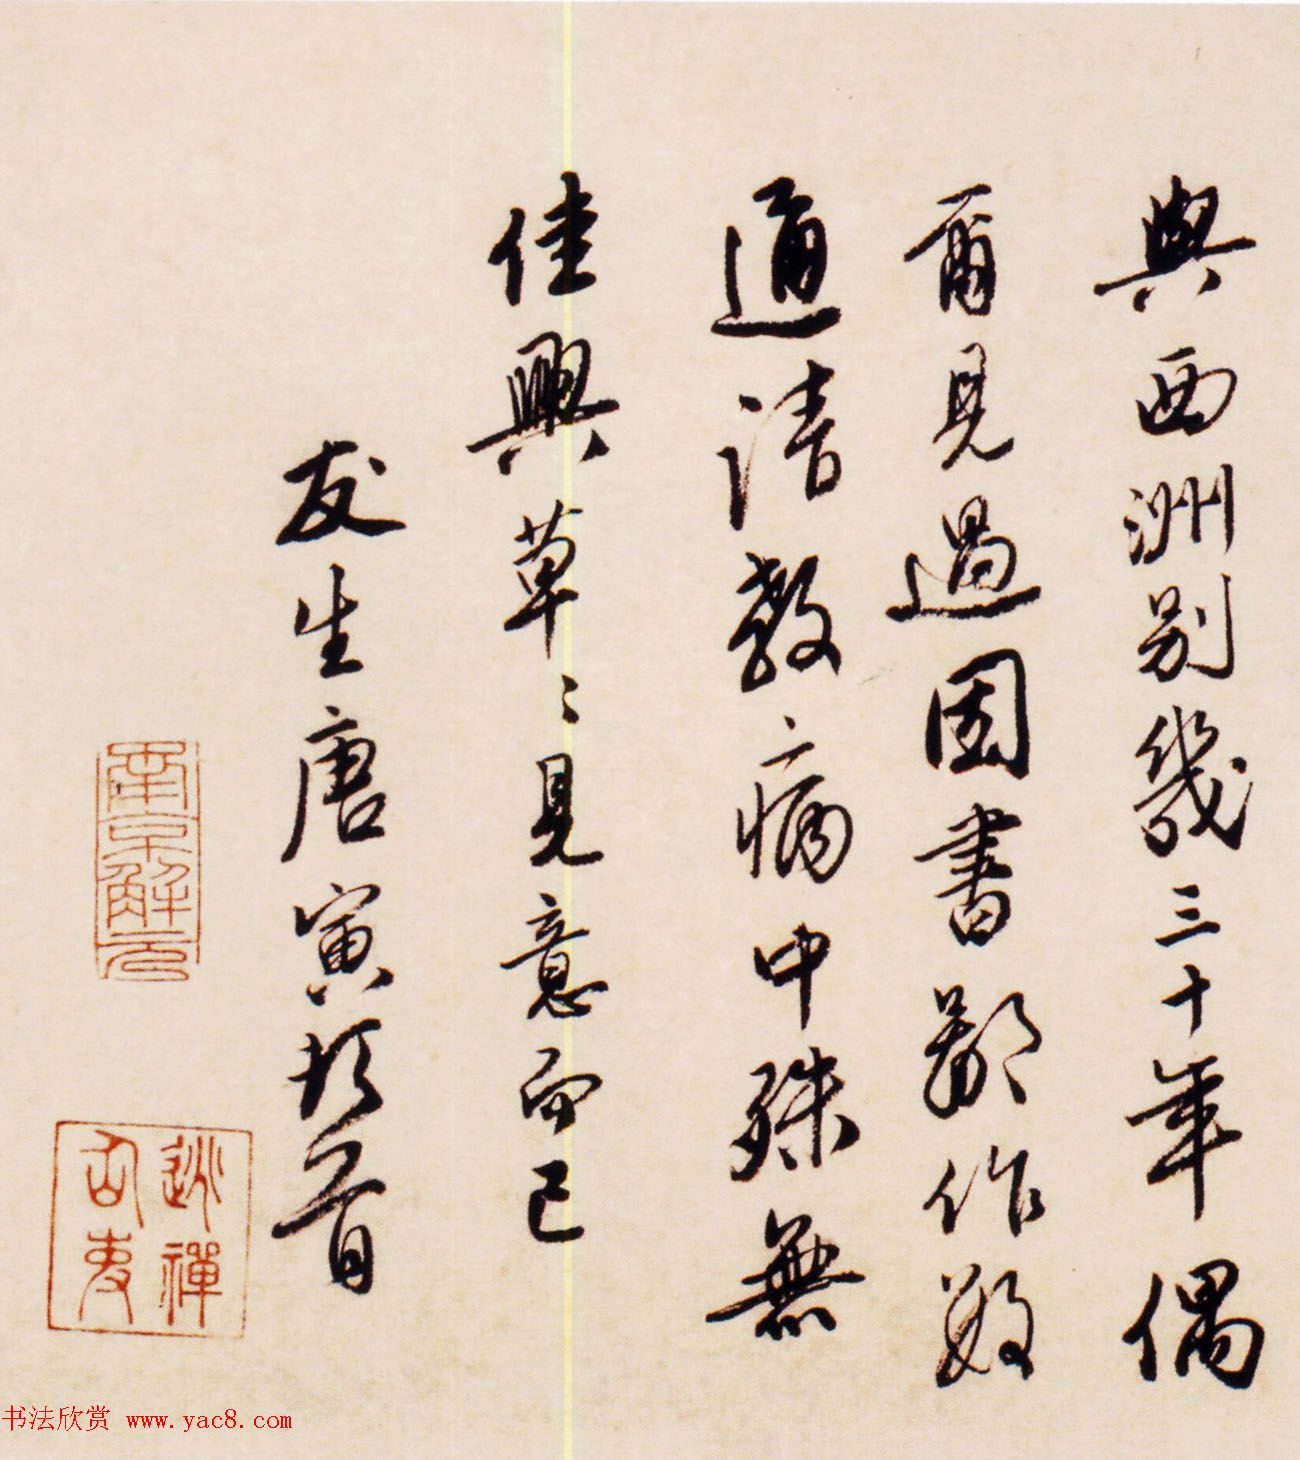 與西洲別幾三十年偶
爾見過因書鄙作數
道請教病中殊無
佳興草〻見意而已
友生唐寅頓首
南京解元
逃禪仙吏
书法欣赏 www.yac8.com